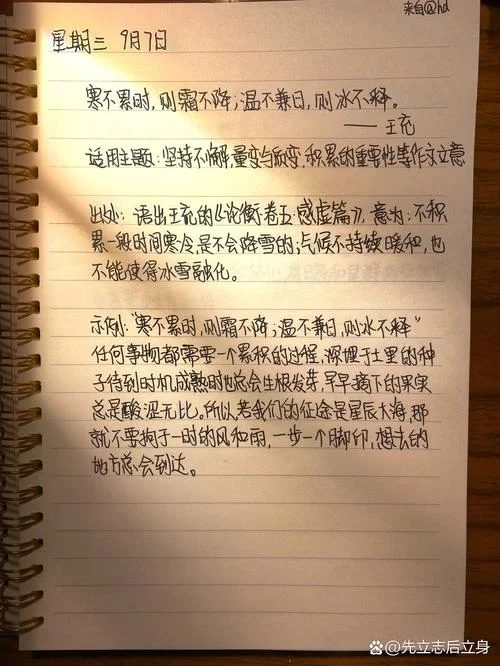 来自@hd
星期三 9月7日
寒不累时,则霜不降;温不兼日,则冰不释。
——王充
适用主题:坚持不懈,量变与质变,积累的重要性等作文立意
出处:语出王充的《论衡·卷五·感虚篇》,意为:不积
累一段时间寒冷是不会降雪的;气候不持续暖和,也
不能使得冰雪融化。
示例:"寒不累时,则霜不降;温不兼日,则冰不释"
任何事物都需要一个累积的过程,深埋于土里的种
子待到时机成熟时也总会生根发芽,早早摘下的果实
总是酸涩无比,所以若我们的征途是星辰大海,那
就不要拘于一时的风和雨,一步一个脚印,想去的
地方总会到达。
先立志后立身